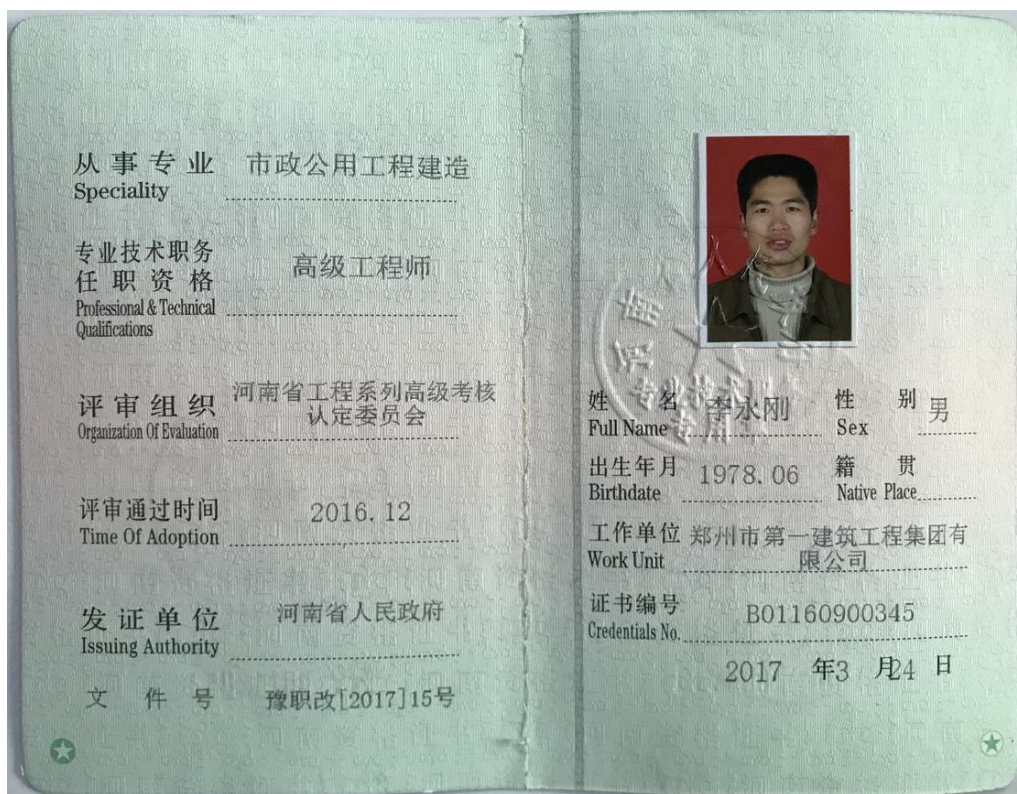 从事专业 市政公用工程建造
Speciality
专业技术职务
任职资格 高级工程师
Professional & Technical
Qualifications
评审组织 河南省工程系列高级考核
认定委员会
Organization Of Evaluation
评审通过时间 2016.12
Time Of Adoption
发证单位 河南省人民政府
Issuing Authority
文件号 豫职改[2017]15号
姓名 李永刚 性别 男
Full Name Sex
出生年月 1978.06 籍贯
Birthdate Native Place
工作单位 郑州市第一建筑工程集团有
Work Unit 限公司
证书编号 B01160900345
Credentials No.
2017 年3 月24 日